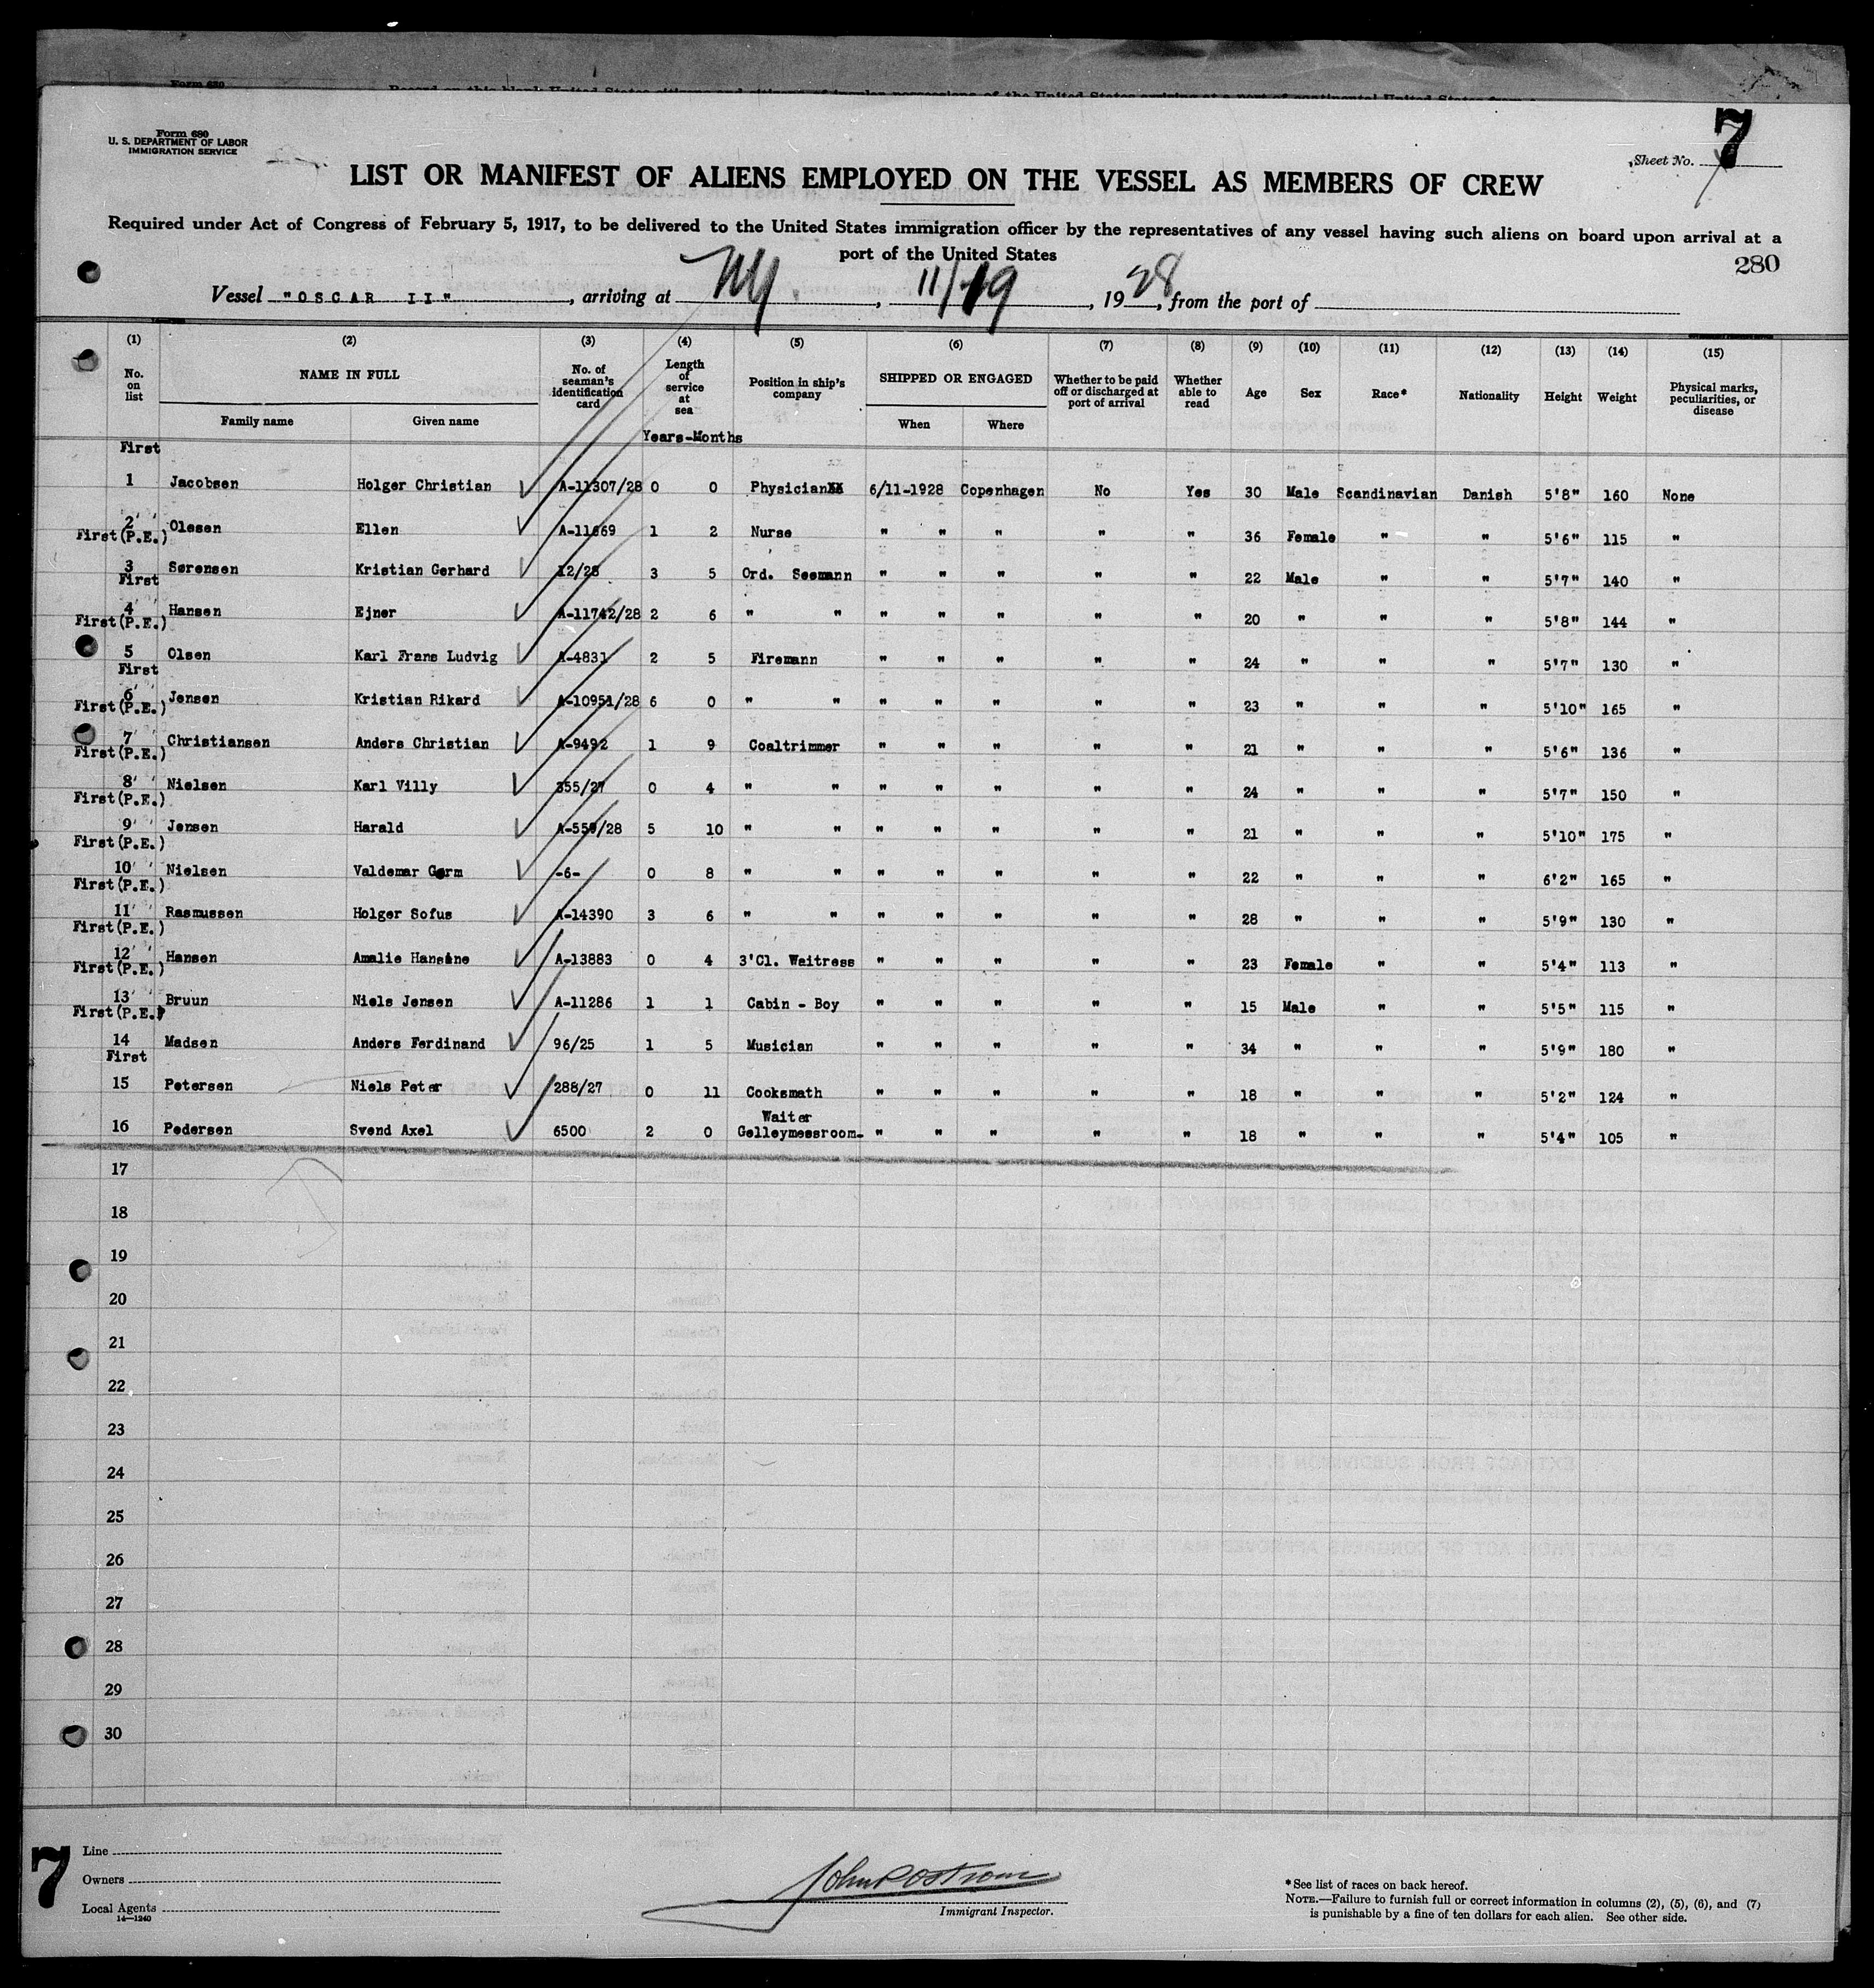 Form 680
U. S. DEPARTMENT OF LABOR
IMMIGRATION SERVICE
7
Sheet No.
LIST OR MANIFEST OF ALIENS EMPLOYED ON THE VESSEL AS MEMBERS OF CREW
Required under Act of Congress of February 5, 1917, to be delivered to the United States immigration officer by the representatives of any vessel having such aliens on board upon arrival at a
port of the United States
280
Vessel "OSCAR II", arriving at NY, 11/19, 1928, from the port of
(1) (2) (3) (4) (5) (6) (7) (8) (9) (10) (11) (12) (13) (14) (15)
No. on list NAME IN FULL No. of seaman's identification card Length of service at sea Position in ship's company SHIPPED OR ENGAGED Whether to be paid off or discharged at port of arrival Whether able to read Age Sex Race* Nationality Height Weight Physical marks, peculiarities, or disease
Family name Given name When Where
Years-Months
First
1 Jacobsen Holger Christian A-11307/28 0 0 Physician 6/11-1928 Copenhagen No Yes 30 Male Scandinavian Danish 5'8" 160 None
2 Olesen Ellen A-11669 1 2 Nurse " " " " " 36 Female " " 5'6" 115 "
First(P.E.)
3 Sørensen Kristian Gerhard 12/28 3 5 Ord. Seemann " " " " " 22 Male " " 5'7" 140 "
First
4 Hansen Ejner A-11742/28 2 6 " " " " " " " 20 " " " 5'8" 144 "
First(P.E.)
5 Olsen Karl Frans Ludvig A-4831 2 5 Firemann " " " " " 24 " " " 5'7" 130 "
First
6 Jensen Kristian Rikard A-10951/28 6 0 " " " " " " " 23 " " " 5'10" 165 "
First(P.E.)
7 Christiansen Anders Christian A-9492 1 9 Coaltrimmer " " " " " 21 " " " 5'6" 136 "
First(P.E.)
8 Nielsen Karl Villy 355/27 0 4 " " " " " " " 24 " " " 5'7" 150 "
First(P.E.)
9 Jensen Harald A-559/28 5 10 " " " " " " " 21 " " " 5'10" 175 "
First(P.E.)
10 Nielsen Valdemar Gorm -6- 0 8 " " " " " " " 22 " " " 6'2" 165 "
First(P.E.)
11 Rasmussen Holger Sofus A-14390 3 6 " " " " " " " 28 " " " 5'9" 130 "
First(P.E.)
12 Hansen Amalie Hansine A-13883 0 4 3'Cl. Waitress " " " " " 23 Female " " 5'4" 113 "
First(P.E.)
13 Bruun Niels Jensen A-11286 1 1 Cabin - Boy " " " " " 15 Male " " 5'5" 115 "
First(P.E.)
14 Madsen Anders Ferdinand 96/25 1 5 Musician " " " " " 34 " " " 5'9" 180 "
First
15 Petersen Niels Peter 288/27 0 11 Cooksmath " " " " " 18 " " " 5'2" 124 "
Waiter
16 Pedersen Svend Axel 6500 2 0 Gelleymessroom- " " " " " 18 " " " 5'4" 105 "
17
18
19
20
21
22
23
24
25
26
27
28
29
30
7
Line
Owners
Local Agents
14—1240
Immigrant Inspector.
*See list of races on back hereof.
NOTE.—Failure to furnish full or correct information in columns (2), (5), (6), and (7)
is punishable by a fine of ten dollars for each alien. See other side.